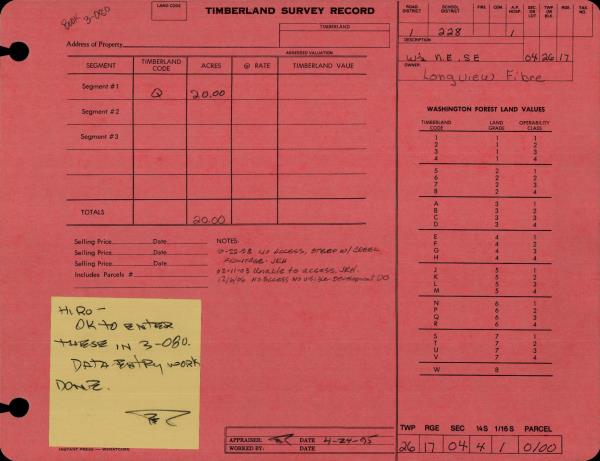 BOOK 3-080
LAND CODE
TIMBERLAND SURVEY RECORD
TIMBERLAND
Address of Property
ASSESSED VALUATION
SEGMENT TIMBERLAND CODE ACRES @ RATE TIMBERLAND VAUE
Segment #1 Q 20.00
Segment #2
Segment #3
TOTALS 20.00
Selling Price Date
Selling Price Date
Selling Price Date
Includes Parcels #
NOTES:
NO ACCESS, STEEP W/ CREEK
FRONTAGE. JRH
02-11-03 Unable to access, JRH.
NO ACCESS NO VISIBLE Development DO
HIRO-
OK TO ENTER
THESE IN 3-080.
DATA ENTRY WORK
DONE.
INSTANT PRESS — WENATCHEE
APPRAISER: DATE 4-24-95
WORKED BY: DATE
ROAD DISTRICT SCHOOL DISTRICT FIRE CEM. A.P. HOSP. SEC. OR LOT TWP OR BLK. RGE. TAX NO.
1 228 1
W½ N.E. SE 04 26 17
OWNER
Longview Fibre
WASHINGTON FOREST LAND VALUES
TIMBERLAND CODE LAND GRADE OPERABILITY CLASS
1 1 1
2 1 2
3 1 3
4 1 4
5 2 1
6 2 2
7 2 3
8 2 4
A 3 1
B 3 2
C 3 3
D 3 4
E 4 1
F 4 2
G 4 3
H 4 4
J 5 1
K 5 2
L 5 3
M 5 4
N 6 1
P 6 2
Q 6 3
R 6 4
S 7 1
T 7 2
U 7 3
V 7 4
W 8
TWP RGE SEC ¼S 1/16 S PARCEL
26 17 04 4 1 0100